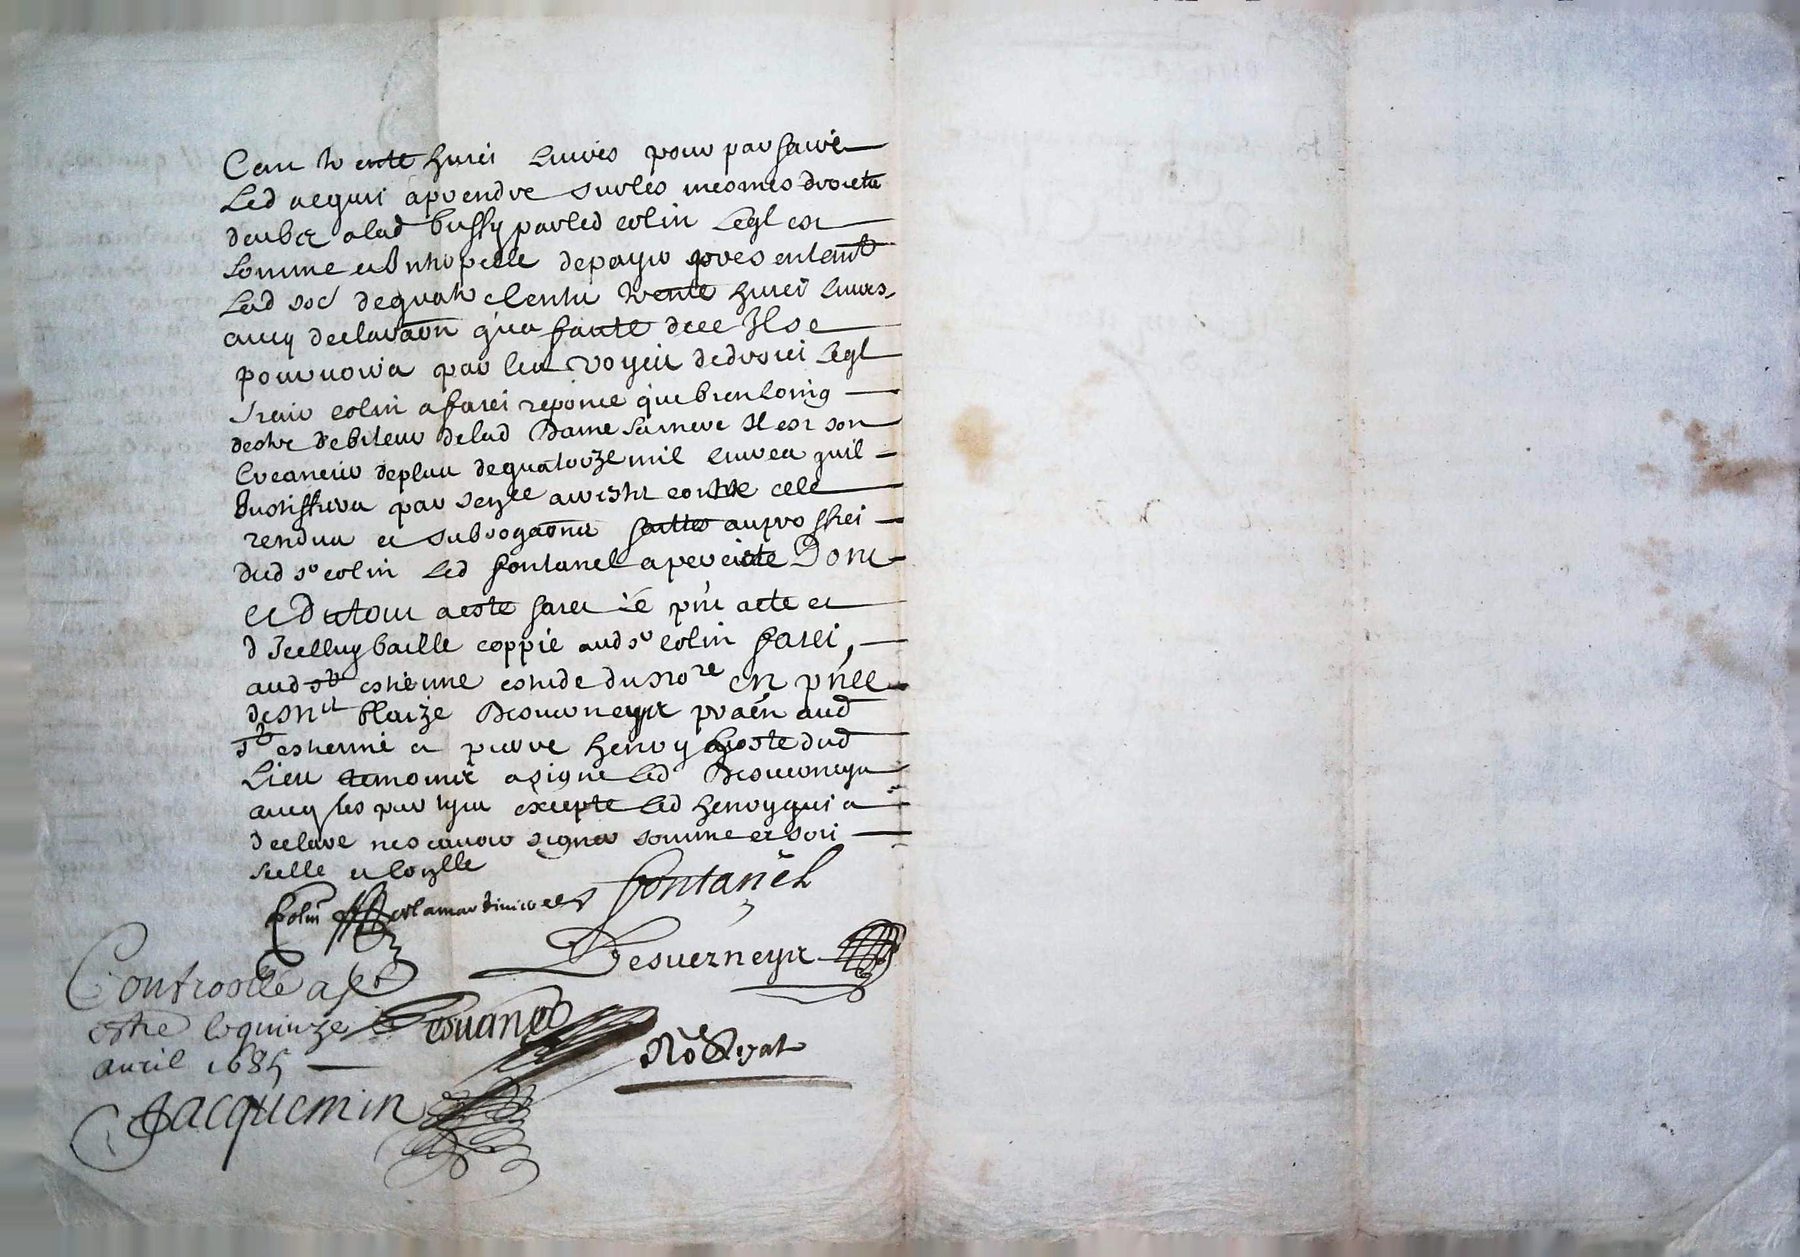 Cent trente huict livres pour parfaire
Led acquit a prendre sur les mesmes droicts
deubz a lad bussy par led colin legl est
somme et interpelle de payer presentemt
Lad so๋ de quatre cents trente huict livres,
avecq declaraon qua faute dece Il se
pourvoira par les voyes de droict Legl
sieur colin a faict reponce que bien loing
destre debiteur de lad Dame sa mere Il est son
Creancier de plus de quatorze mil livres quil
Justiffiera par seize arrestz contre elle
rendus et subrogaons faittes au proffict
dud sr colin Led fontanel a perciste Dont
et Du tout a este faict le pnt acte et
d Icelluy baille coppie aud sr colin faict,
aud st estienne estude du nore En pnce
de Mre blaize Desverneyx praen aud
st estienne et pierre henry hoste dud
Lieu temoins a signe led Desverneys
avecq les partyes excepte led henry qui a
declare ne scavoir signer somme et soit
scelle et loylle
Colin fontanel
Desverneys
Controolle a st
estie le quinze
avril 1685
Jacquemin